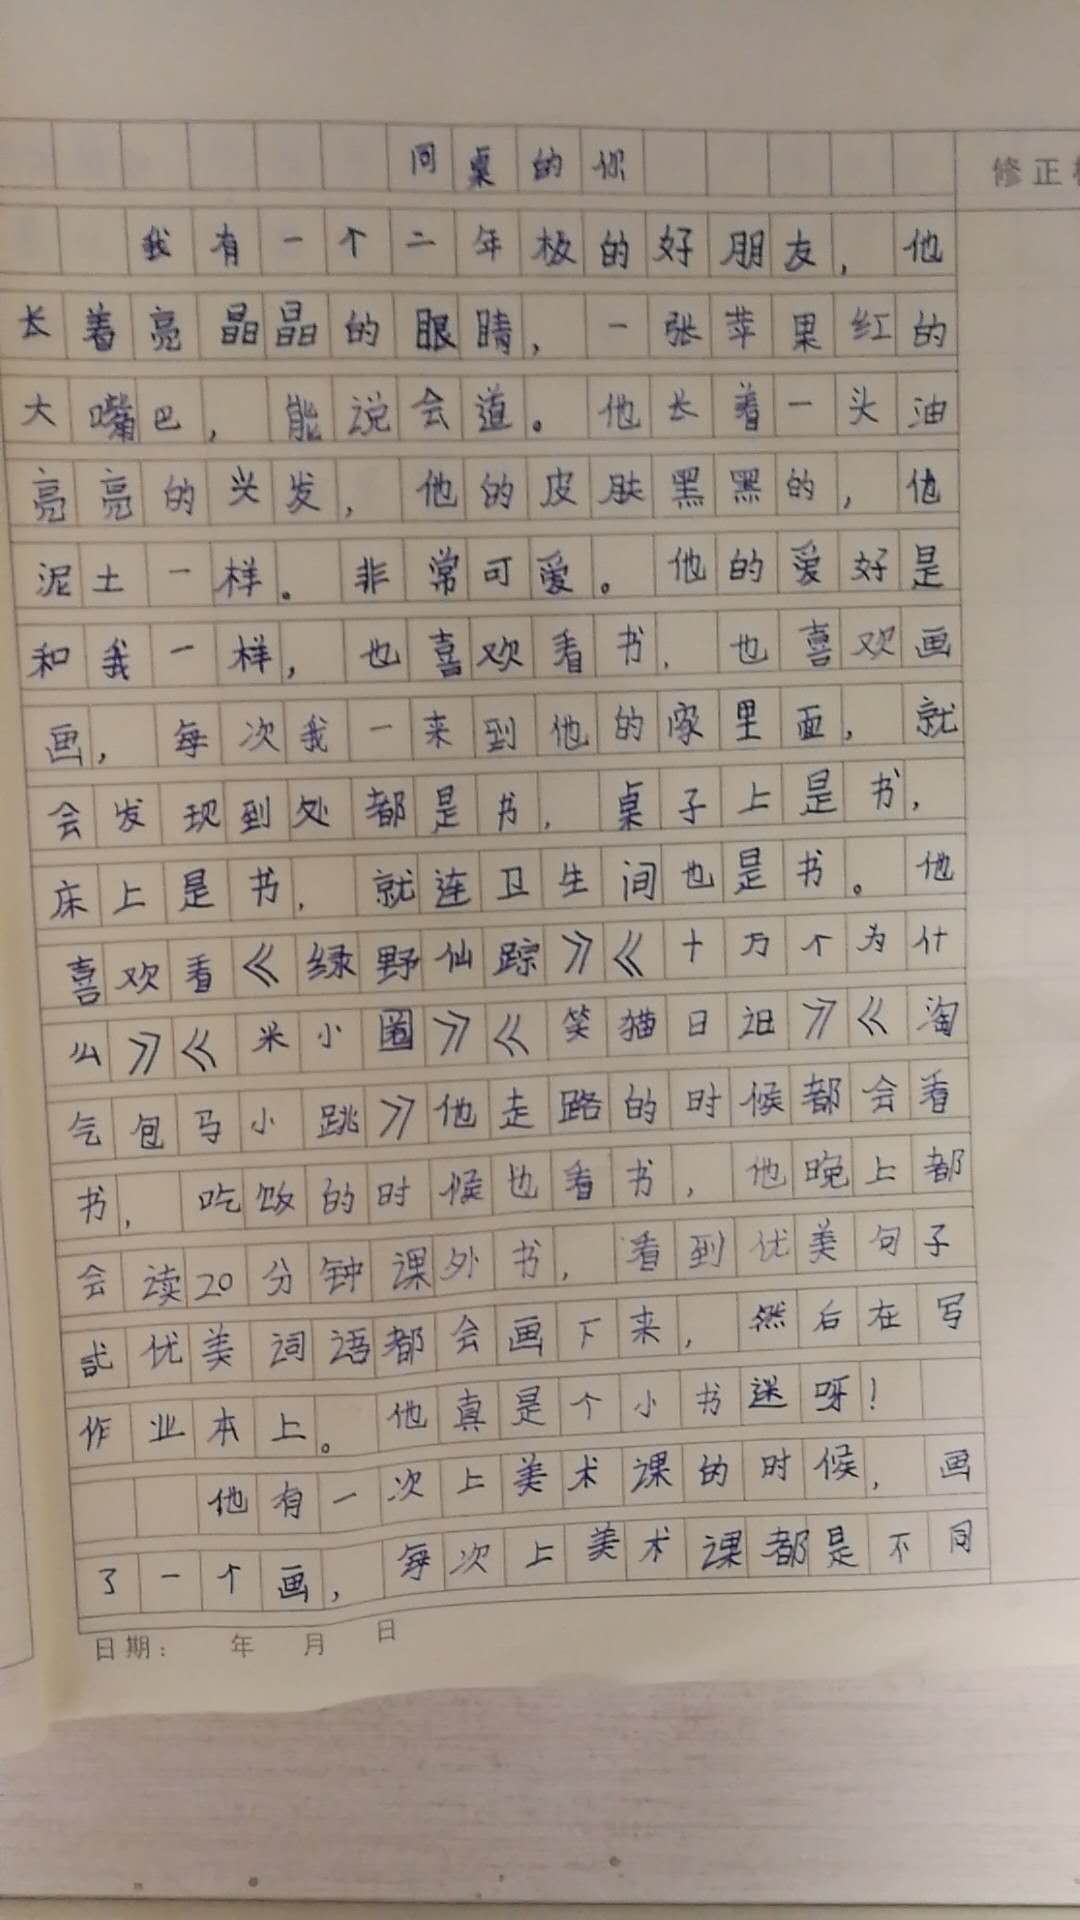 同桌的你
修正
我有一个二年极的好朋友，他
长着亮晶晶的眼睛，一张苹果红的
大嘴巴，能说会道。他长着一头油
亮亮的头发，他的皮肤黑黑的，他
泥土一样。非常可爱。他的爱好是
和我一样，也喜欢看书，也喜欢画
画，每次我一来到他的家里面，就
会发现到处都是书，桌子上是书，
床上是书，就连卫生间也是书。他
喜欢看《绿野仙踪》《十万个为什
么》《米小圈》《笑猫日记》《淘
气包马小跳》他走路的时候都会看
书，吃饭的时候也看书，他晚上都
会读20分钟课外书，看到优美句子
或优美词语都会画下来，然后在写
作业本上。他真是个小书迷呀！
他有一次上美术课的时候，画
了一个画，每次上美术课都是不同
日期： 年 月 日